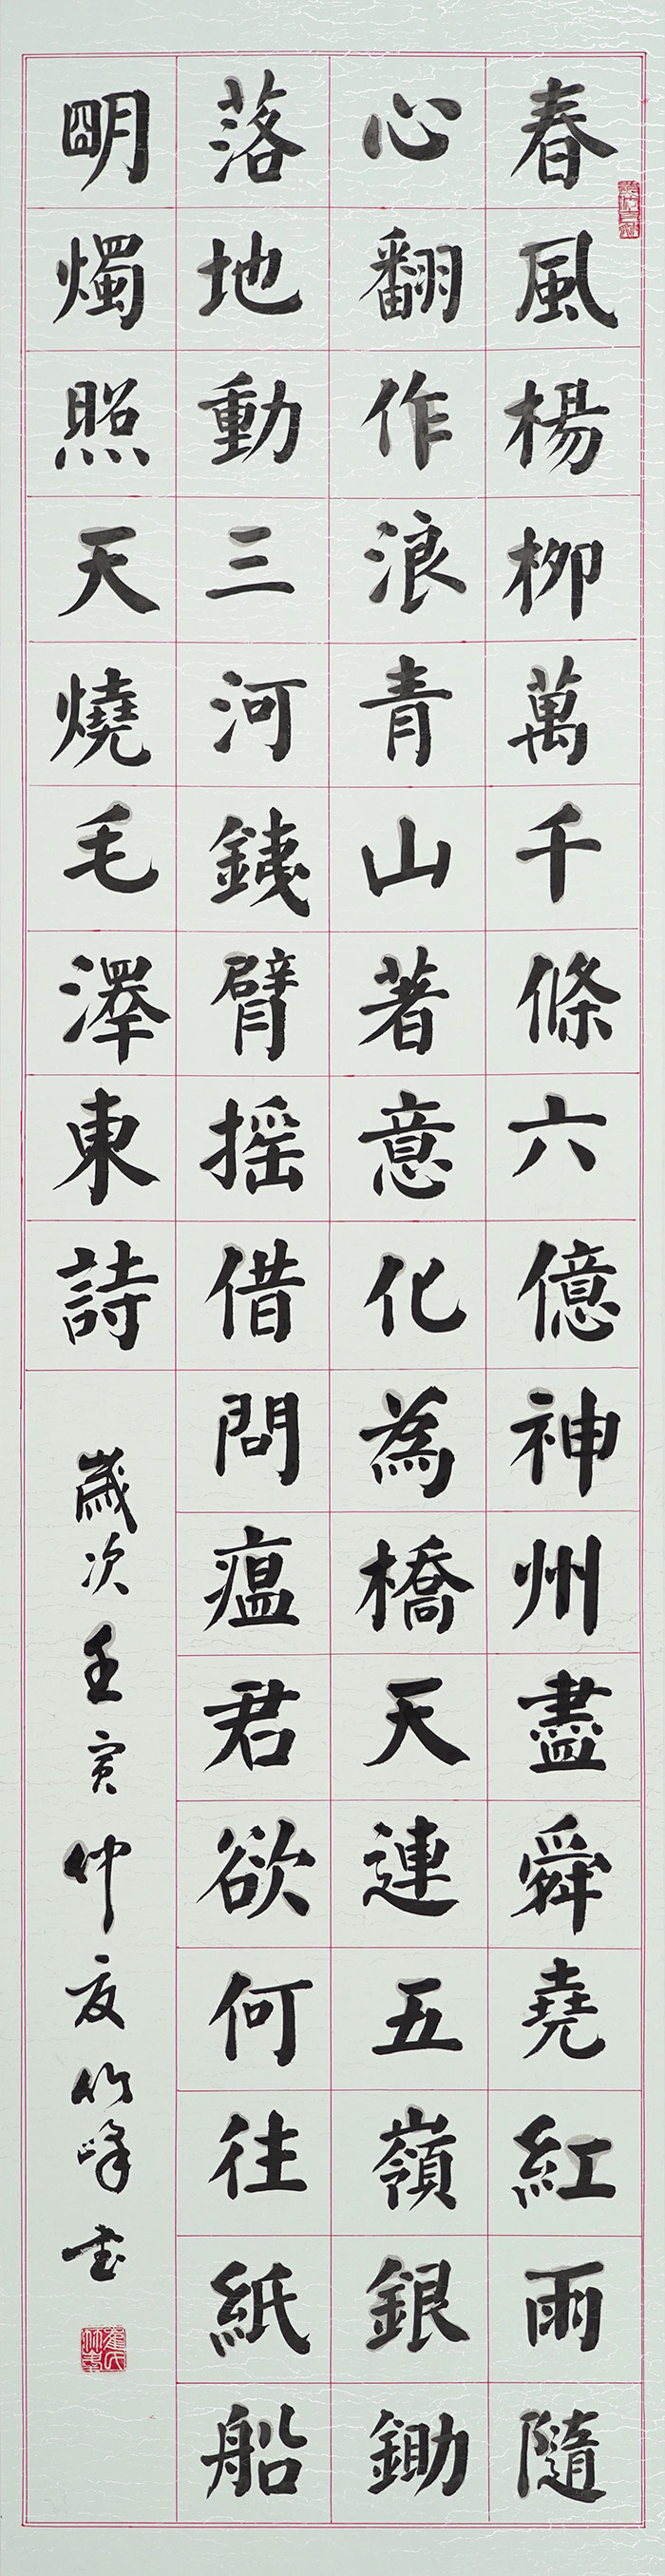 春風楊柳萬千條六億神州盡舜堯紅雨隨
心翻作浪青山著意化為橋天連五嶺銀鋤
落地動三河銕臂摇借問瘟君欲何往紙船
朙燭照天燒毛澤東詩
歲次壬寅仲夏竹峰書